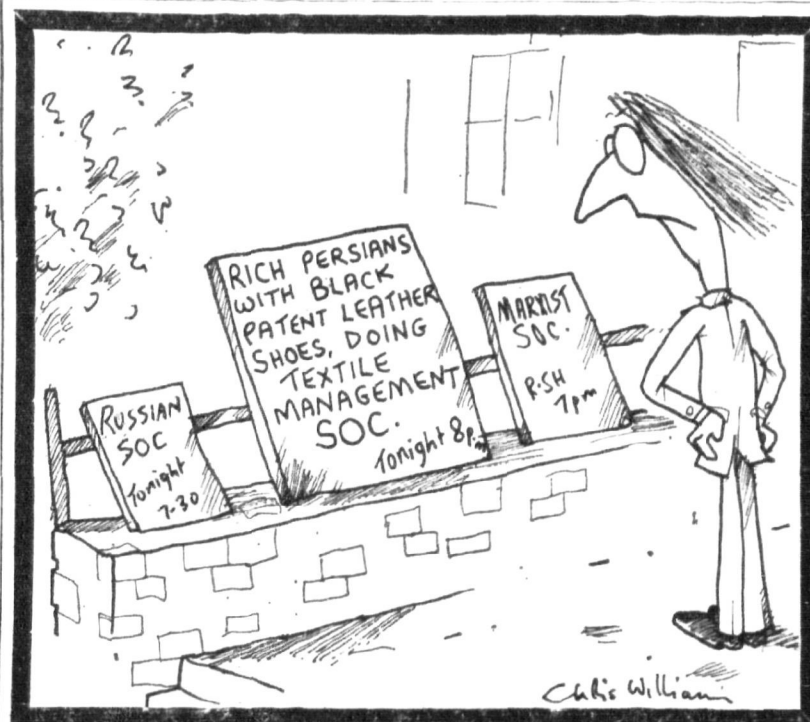 RUSSIAN
SOC
Tonight
7-30
RICH PERSIANS
WITH BLACK
PATENT LEATHER
SHOES, DOING
TEXTILE
MANAGEMENT
SOC.
Tonight 8p.m
MARXIST
SOC.
R.SH
1pm
Chris Williams